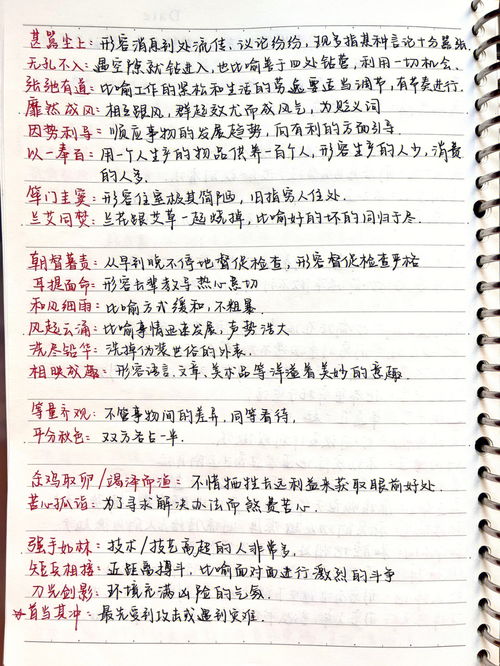 Date
甚嚣尘上：形容消息到处流传、议论纷纷，现多指某种言论十分嚣张
无孔不入：遇空隙就钻进入，也比喻善于四处钻营，利用一切机会.
张弛有道：比喻工作的紧松和生活的劳逸要适当调节，有节奏进行.
靡然成风：相互跟风，群起效尤而成风气，为贬义词
因势利导：顺应事物的发展趋势，向有利的方面引导.
以一奉百：用一个人生产的物品供养一百个人，形容生产的人少，消费
的人多.
筚门圭窦：形容住室极其简陋，旧指穷人住处.
兰艾同焚：兰花跟艾草一起烧掉，比喻好的坏的同归于尽.
朝督暮责：从早到晚不停地督促检查，形容督促检查严格
耳提面命：形容长辈教导热心恳切
和风细雨：比喻方式缓和，不粗暴.
风起云涌：比喻事情迅速发展，声势浩大
洗尽铅华：洗掉伪装世俗的外表.
相映成趣：形容语言、文章、美术品等洋溢着美妙的意趣.
等量齐观：不管事物间的差异，同等看待，
平分秋色：双方各占一半.
杀鸡取卵/竭泽而渔：不惜牺牲长远利益来获取眼前好处.
苦心孤诣：为了寻求解决办法而煞费苦心.
强手如林：技术/技艺高超的人非常多，
短兵相接：近距离搏斗，比喻面对面进行激烈的斗争
刀光剑影：环境充满凶险的气氛.
*首当其冲：最先受到攻击或遇到灾难.